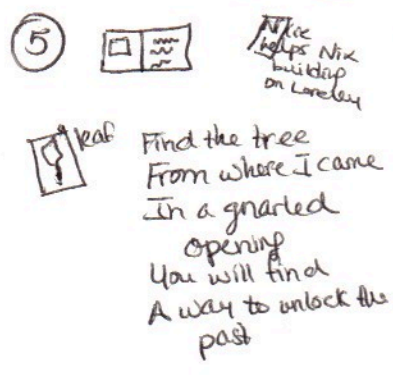 5
helps Nix
building
on Loreley
leaf
Find the tree
From where I came
In a gnarled
opening
You will find
A way to unlock the
past